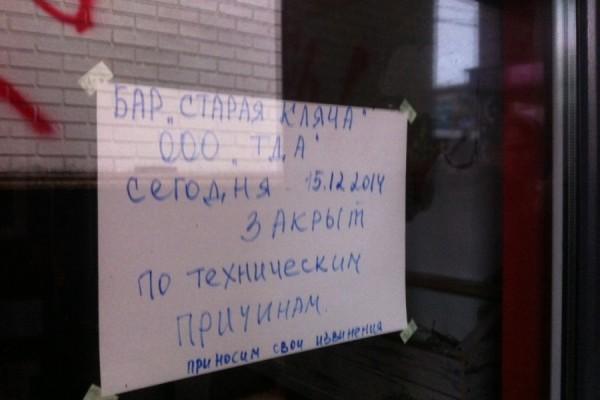 БАР „СТАРАЯ КЛЯЧА"
ООО „ТДА"
сегодня 15.12.2014
ЗАКРЫТ
по техническим
ПРИЧИНАМ.
приносим свои извинения